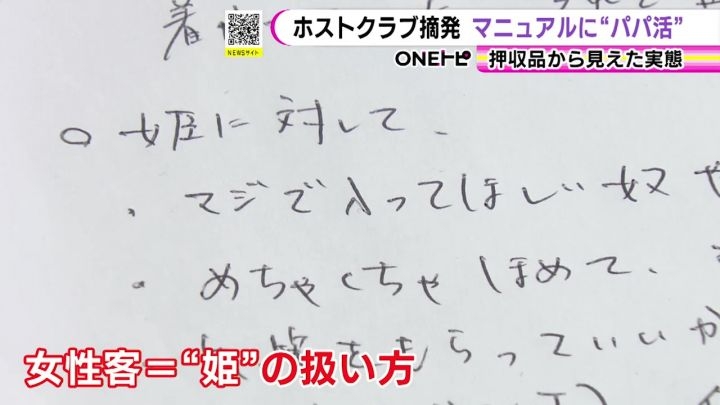 NEWSサイト
ホストクラブ摘発 マニュアルに“パパ活”
ONEトピ 押収品から見えた実態
着
○ 姫に対して、
・マジで入ってほしい奴や
・めちゃくちゃほめて、
をもらっていいか
女性客＝“姫”の扱い方